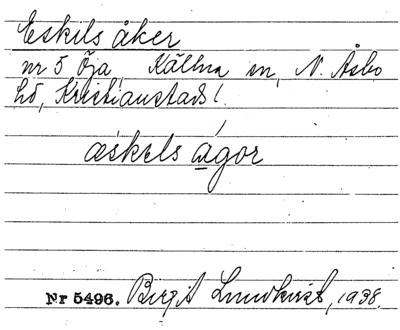 Eskils åker
nr 5 Öja, Källna sn, N. Åsbo
hd, Kristianstads l.
æskels ågor
Nr 5496. Birgit Lundkvist, 1938.